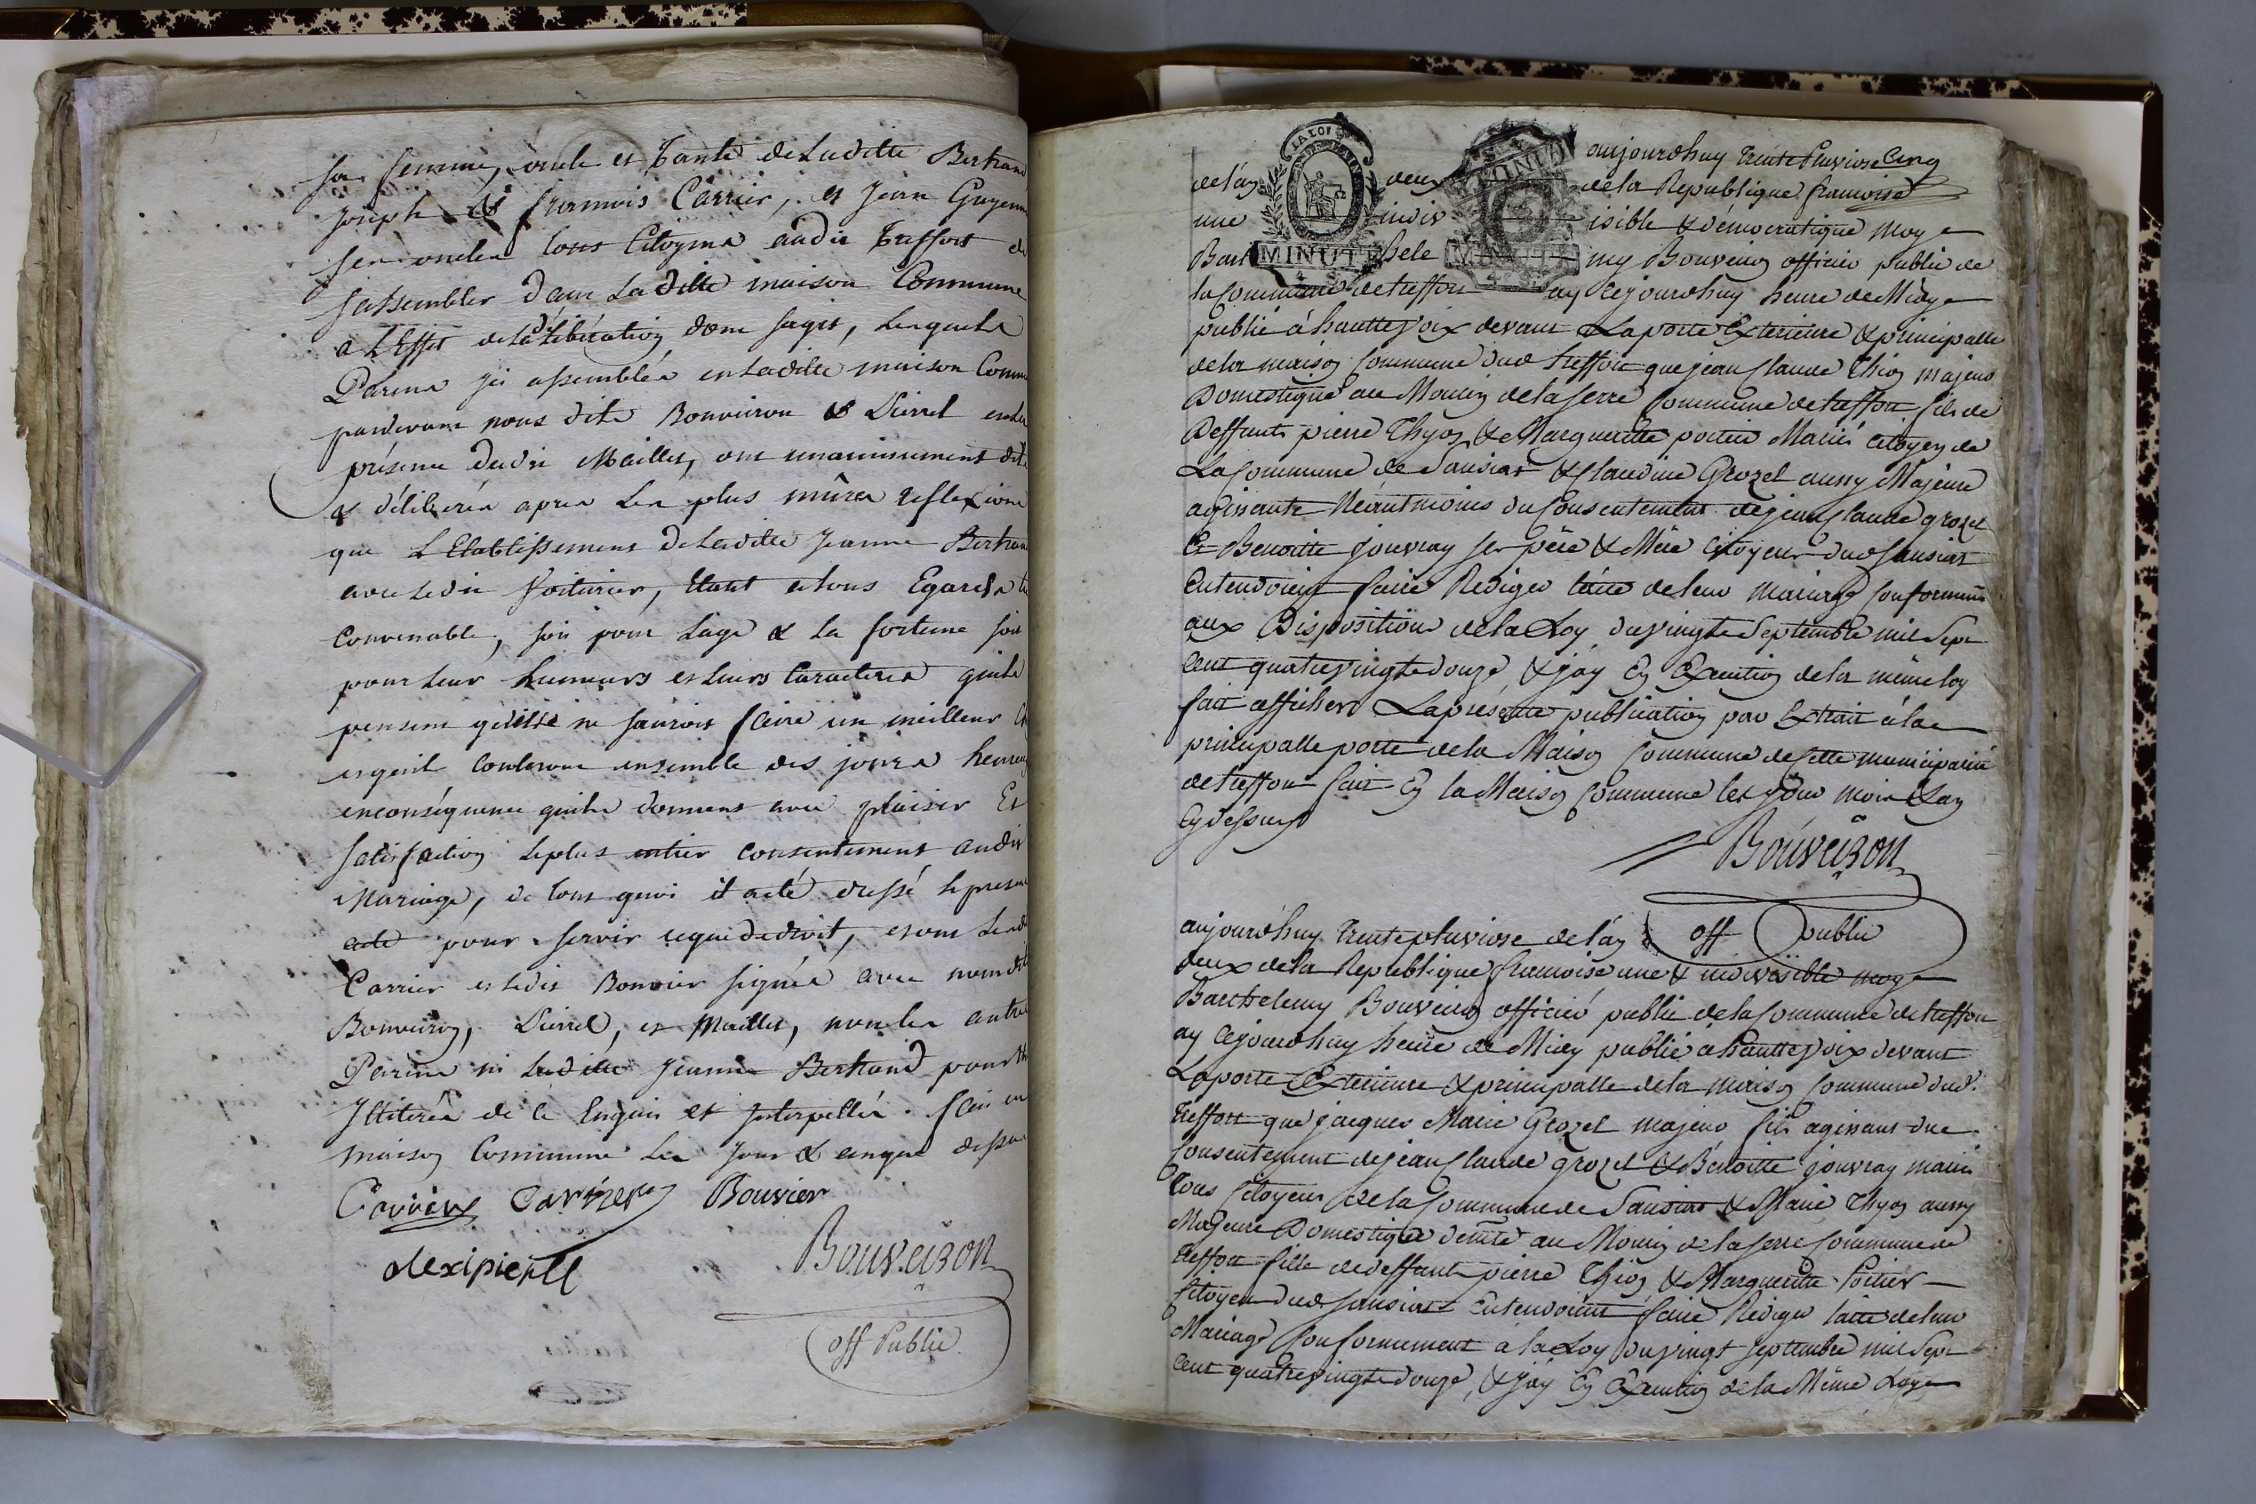 sa femme, oncle et tante de Laditte Bertrand
Joseph & francois Carrier, et Jean Guyenn
ses oncles tous Citoyens audit treffort de
sassembler dans Laditte maison Commune
a L'Effet de la délibération dont sagit, Lesquels
Parens icy assemblés en Laditte maison Comm
pardevant nous dits Bouveiron & Dirrel en la
présence dudit Maillet, ont unanimement dit
& délibérés apres Les plus mûres reflexions
que L'Etablissement de Laditte Jeanne Bertrand
avec Ledit Voiturier, Etant a tous Egards tr
Convenable, soit pour Lage & La fortune soit
pour Leur humeurs et Leurs Caracteres quils
pensent qu'elle ne sauroit faire un meilleur Ch
et quils Couleront ensemble des jours heureux
en conséquence quils donnent avec plaisir Et
satisfaction Leplus entier consentement audit
Mariage, de tout quoi il a été dressé le present
acte pour servir ce que de droit, et ont Lesd
Carrier et ledit Bouvier signés avec nousdits
Bouveiron, Dirrel, et Maillet, non les autres
Parens ni Laditte Jeanne Bertrand pour etre
Illiterés de ce Enquis et Interpellés. fait en
maison Commune Les Jour & an que dessus
Carrier Carrier Bouvier
dexipierte
Bouveiron
off Public
aujourdhuy trente Pluviose Cinq
de lan deux de la Republique francoise
une indivisible & démocratique moy
Barthelemy Bouveiron officier public de
la Commune de treffort ay cejourdhuy heure de Midy
publié à hautte voix devant La porte Exterieure & principalle
de la maison Commune dud treffort que jean Claude Thion majeur
Domestique au Moulin de la serre Commune de treffort fils de
Deffunts pierre Thyon & Marguerite poitier Mariés citoyen de
La Commune de Sansiat & Claudine Grozel aussy Majeure
agissante Néantmoins du Consentement de jean Claude grozel
& Benoitte jouvray ses père & Mère Citoyens dud Sansiat
Entendoient faire Rediger lacte de leur mariage Conformement
aux Dispositions de la Loy du vingt Septembre mil Sept
Cent quatrevingt douze, & jay En Execution de la même loy
fait afficher La présente publication par Extrait à la
principalle porte de la Maison Commune de Cette municipalité
de treffort fait En la Maison Commune les jour mois & an
Cy dessus
Bouveiron
off public
aujourdhuy trente pluviose de lan
deux de la Republique francoise une & indivisible moy
Barthelemy Bouveiron officier public de la Commune de treffort
ay Cejourdhuy heure de Midy publié à hautte voix devant
La porte Exterieure & principalle de la maison Commune dud.
treffort que jacques Marie Grozel majeur fils agissant du
Consentement de jean Claude grozel & Benoitte jouvray mariés
tous Citoyens de la Commune de Sansiat & Marie Thyon aussy
Majeure Domestique demte au Moulin de la serre Commune de
treffort fille de deffunts pierre Thion & Marguerite Poitier
Citoyen dud sansiat Entendoient faire Rediger lacte de leur
Mariage Conformement à la Loy du vingt septembre mil Sept
Cent quatrevingt douze, & jay En Execution de la Même Loy